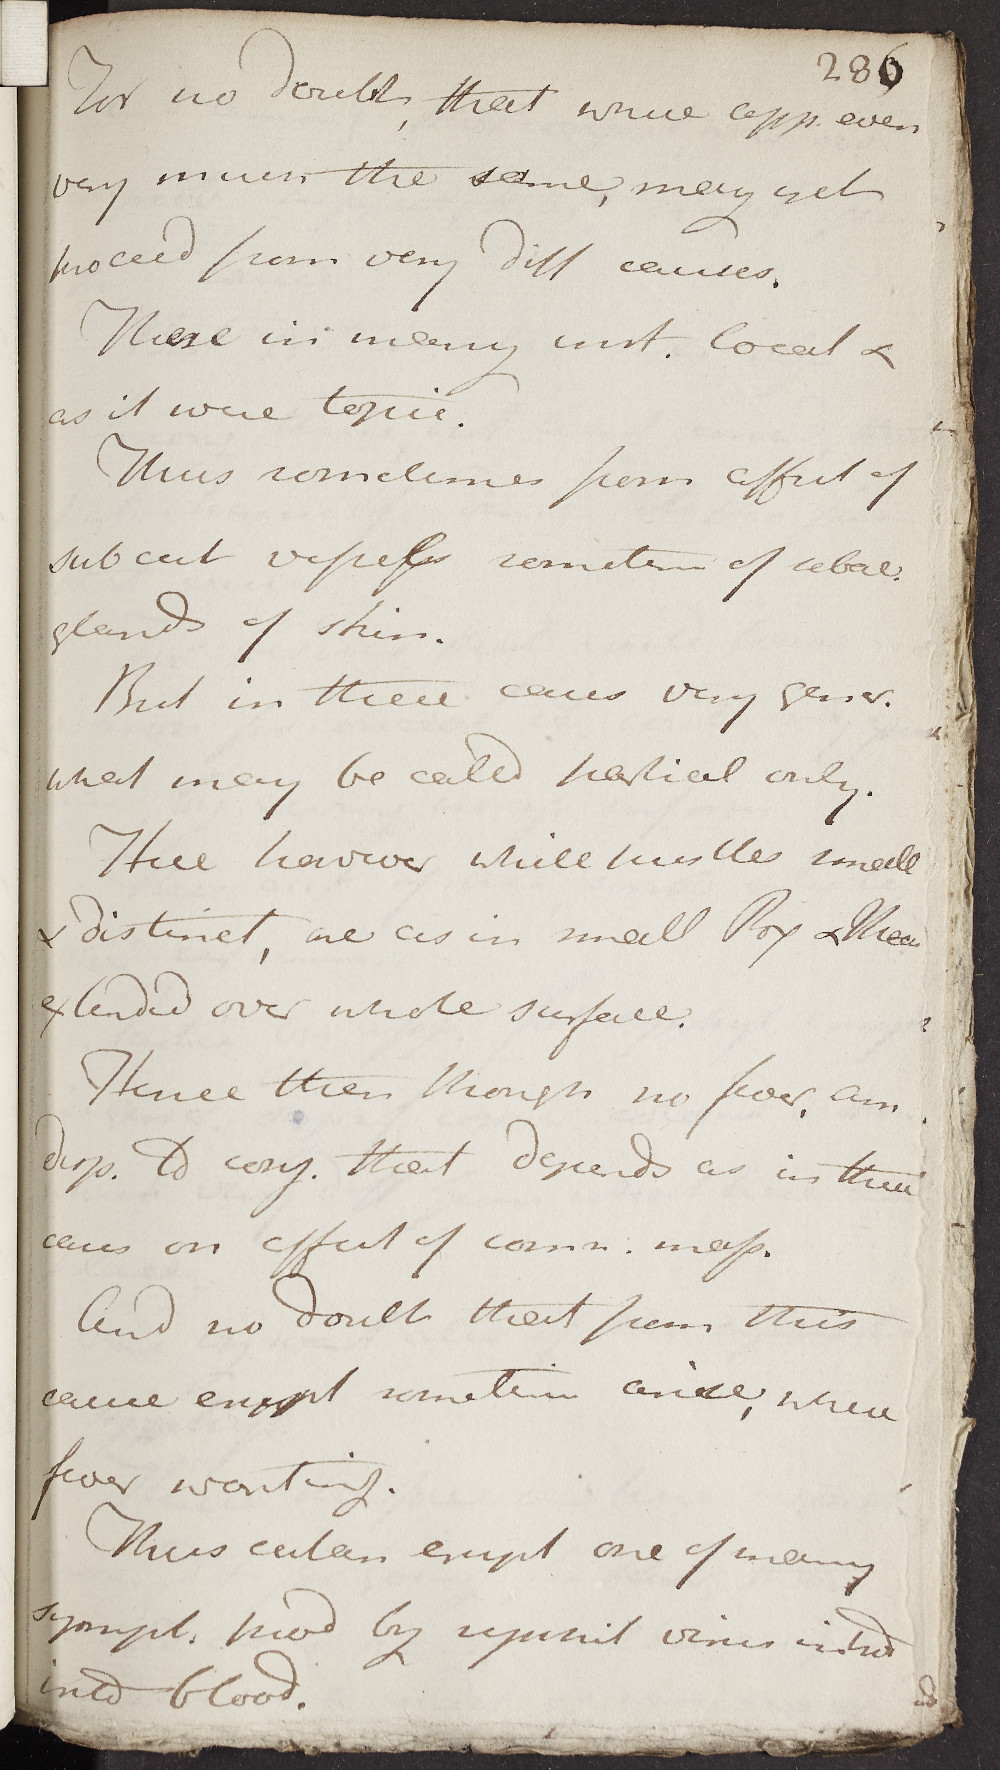 286
For no doubt, that where app. even
very much the same, may yet
proceed from very diff causes.
These in many inst. local &
as it were topic.
Thus sometimes from affect of
subcut vessels sometim of sebac.
glands of skin.
But in these cases very gener.
what may be called partial only.
Here however while pustles small
& distinct, are as in small Pox & Meas
extended over whole surface.
Hence then though no fever, an
disp. to cong. that depends as in these
cases on affect of comm. mass.
And no doubt that from this
cause erupt sometim arise, where
fever wanting.
Thus cutan erupt one of many
sympt. prod by syphilit virus introd
into blood.